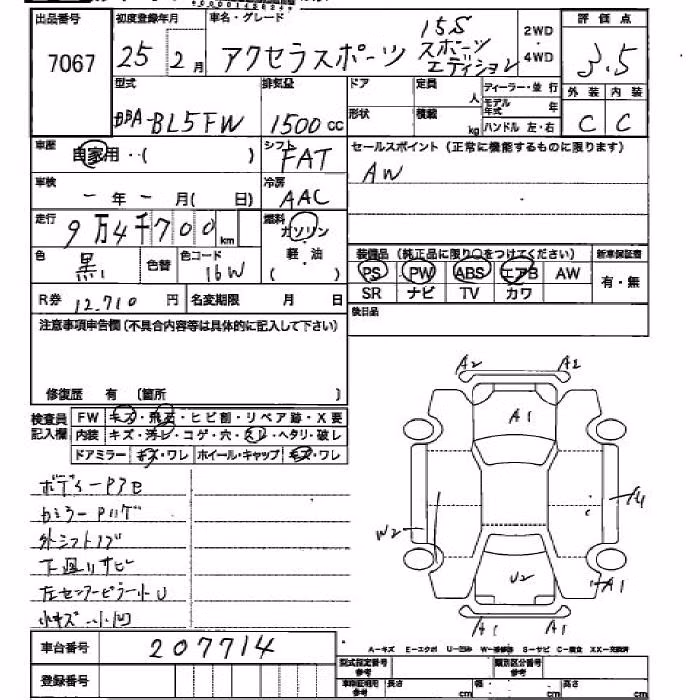 出品番号 初度登録年月 車名・グレード 評価点
7067 25 2月 アクセラスポーツ 15S スポーツエディション 2WD・4WD 3.5
型式 排気量 ドア 定員 人 ディーラー・並行 外装 内装
DBA-BL5FW 1500cc 形状 積載 kg モデル年式 年 ハンドル 左・右 C C
車歴 自家用・・( ) シフト FAT セールスポイント(正常に機能するものに限ります)
車検 ー年ー月( 日) 冷房 AAC AW
走行 9万4千700km 燃料 ガソリン・軽油・( )
色 黒 色替 色コード 16W 装備品(純正品に限り○をつけてください) 新車保証書
PS PW ABS エアB AW 有・無
R券 12,710円 名変期限 月 日 SR ナビ TV カワ
注意事項申告欄(不具合内容等は具体的に記入して下さい) 後日品
修復歴 有 〔箇所 〕
検査員記入欄 FW キズ・飛石・ヒビ割・リペア跡・X要
内装 キズ・汚レ・コゲ・穴・スレ・ヘタリ・破レ
ドアミラー キズ・ワレ ホイール・キャップ キズ・ワレ
A2 A2
A1
W2
U2
A1
A1 A1
ボディーPアセ
外シフトノブ
下廻リサビ
左センターピラー小U
小キズ・小凹
車台番号 207714
A-キズ E-エクボ U-凹み W-補修跡 S-サビ C-腐食 XX-交換済
登録番号 型式指定番号 参考 類別区分番号 参考
車車証明用 参考 長さ cm 幅 cm 高さ cm